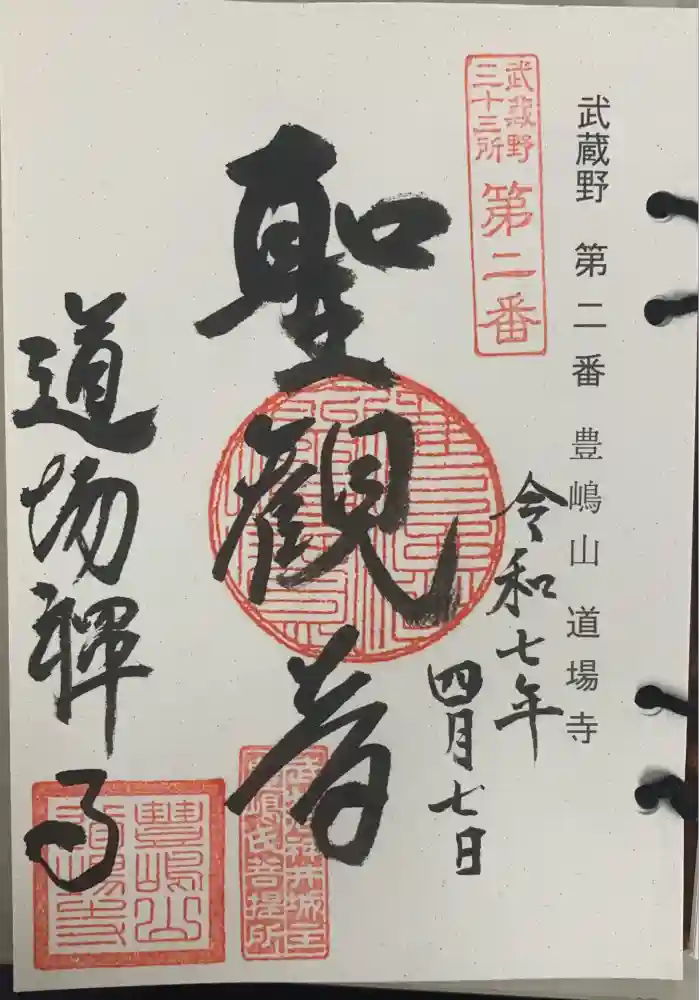 武蔵野 第二番 豊嶋山 道場寺
武蔵野
三十三所
第二番
令和七年
四月七日
聖観音
道場禅寺
豊嶋山
道場寺
豊嶋氏菩提所